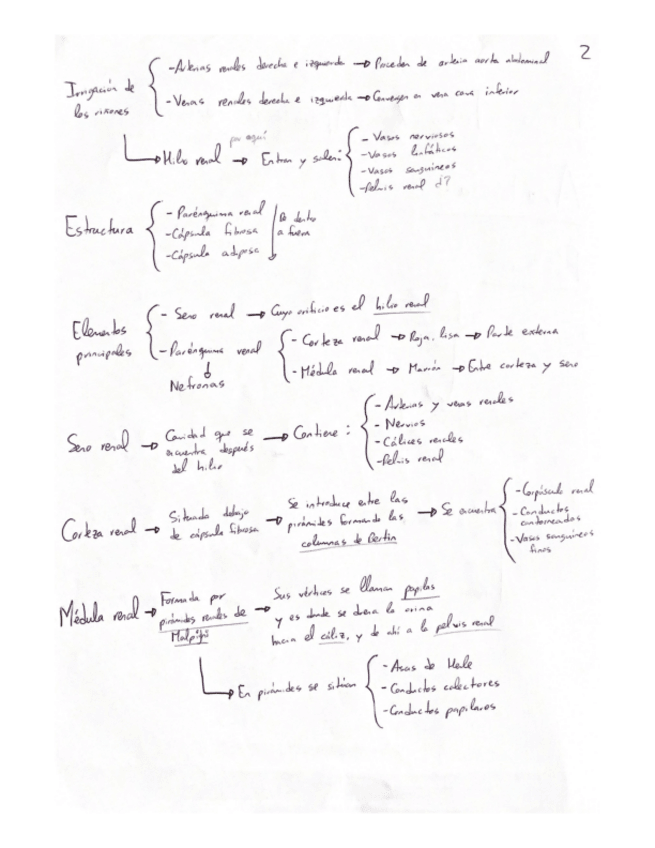 2
Irrigación de los riñones
- Arterias renales derecha e izquierda → Proceden de arteria aorta abdominal
- Venas renales derecha e izquierda → Convergen en vena cava inferior
por aquí
Hilio renal → Entran y salen:
- Vasos nerviosos
- Vasos linfáticos
- Vasos sanguíneos
- Pelvis renal d?
Estructura
- Parénquima renal
- Cápsula fibrosa
- Cápsula adiposa
De dentro
a fuera
Elementos
principales
- Seno renal → Cuyo orificio es el hilio renal
- Parénquima renal
Nefronas
- Corteza renal → Roja, lisa → Parte externa
- Médula renal → Marrón → Entre corteza y seno
Seno renal → Cavidad que se
encuentra después
del hilio
→ Contiene:
- Arterias y venas renales
- Nervios
- Cálices renales
- Pelvis renal
Corteza renal → Situada debajo
de cápsula fibrosa
→ Se introduce entre las
pirámides formando las
columnas de Bertin
→ Se encuentra
- Corpúsculo renal
- Conductos
contorneados
- Vasos sanguíneos
finos
Médula renal → Formada por
pirámides renales de
Malpigi
→ Sus vértices se llaman papilas
y es donde se drena la orina
hacia el cáliz, y de ahí a la pelvis renal
→ En pirámides se sitúan
- Asas de Henle
- Conductos colectores
- Conductos papilares